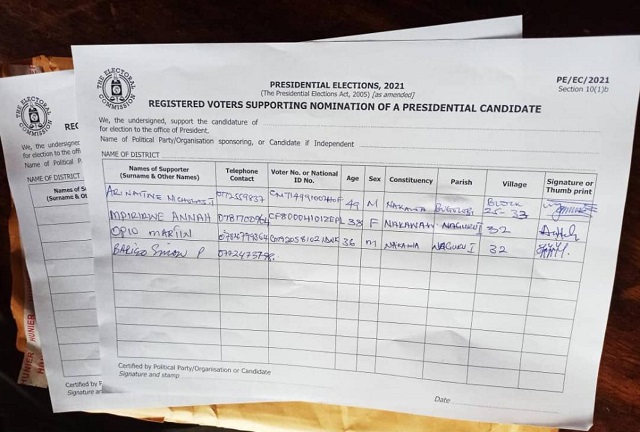 THE ELECTORAL COMMISSION
PRESIDENTIAL ELECTIONS, 2021
(The Presidential Elections Act, 2005) [as amended]
PE/EC/2021
Section 10(1)b
REGISTERED VOTERS SUPPORTING NOMINATION OF A PRESIDENTIAL CANDIDATE
We, the undersigned, support the candidature of
for election to the office of President.
Name of Political Party/Organisation sponsoring, or Candidate if Independent
NAME OF DISTRICT
Names of Supporter (Surname & Other Names) Telephone Contact Voter No. or National ID No. Age Sex Constituency Parish Village Signature or Thumb print
49 M NAKAWA BLOCK 25-33
ANNAH 38 F NAKAWA NAGURU I 32
OPIO MARTIN 36 M NAKAWA NAGURU I 32
BARIGO SIMON P
Certified by Political Party/Organisation or Candidate
Signature and stamp
Date
THE ELECTORAL COMMISSION
REC
We, the undersigned
for election to the office
Name of Political P
NAME OF DISTRICT
Names of S
(Surname &
Certified by P
Signature and
HUNTER